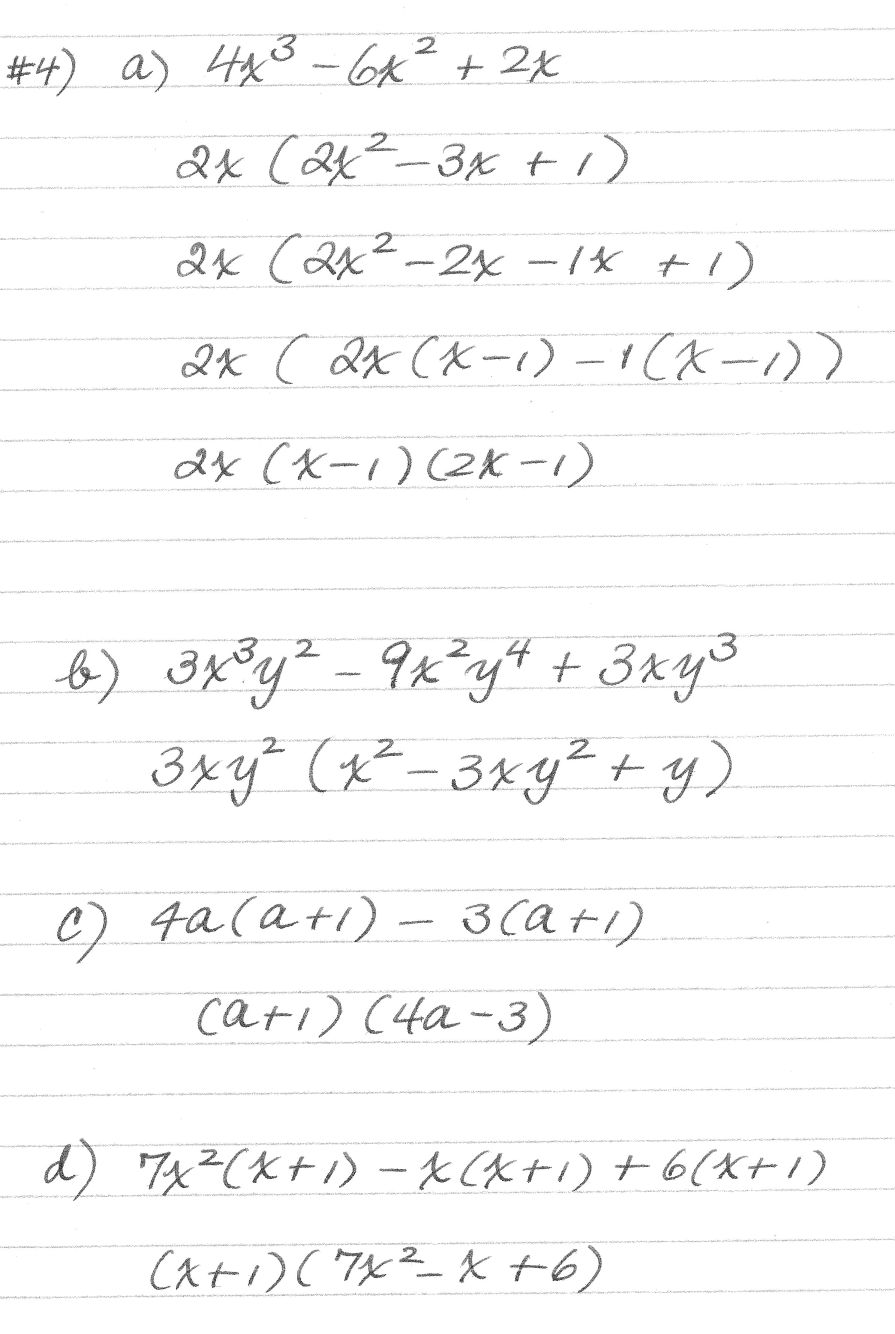 #4) a) 4x³ - 6x² + 2x
2x (2x² - 3x + 1)
2x (2x² - 2x - 1x + 1)
2x ( 2x (x-1) - 1 (x-1))
2x (x-1) (2x-1)
b) 3x³y² - 9x²y⁴ + 3xy³
3xy² (x² - 3xy² + y)
c) 4a(a+1) - 3(a+1)
(a+1) (4a-3)
d) 7x²(x+1) - x(x+1) + 6(x+1)
(x+1)(7x² - x + 6)